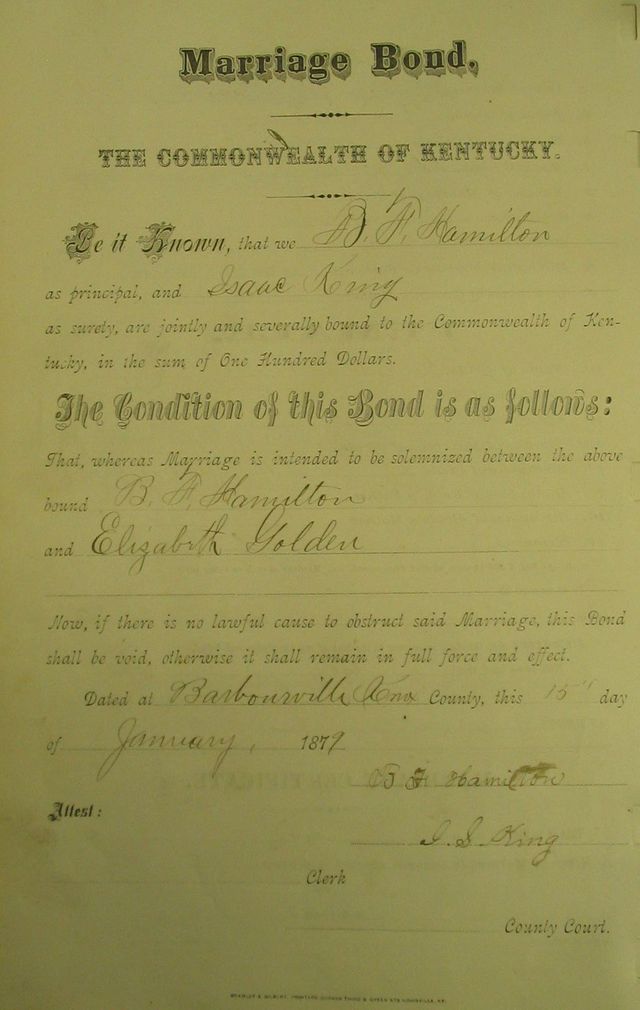 Marriage Bond.
THE COMMONWEALTH OF KENTUCKY.
Be it Known, that we B. F. Hamilton
as principal, and Isaac King
as surety, are jointly and severally bound to the Commonwealth of Ken-
tucky, in the sum of One Hundred Dollars.
The Condition of this Bond is as follows:
That, whereas Marriage is intended to be solemnized between the above
bound B. F. Hamilton
and Elizabeth Golden
Now, if there is no lawful cause to obstruct said Marriage, this Bond
shall be void, otherwise it shall remain in full force and effect.
Dated at Barbourville Knox County, this 15" day
of January, 1879
B F Hamilton
Attest:
I. S. King
Clerk
County Court.
BRADLEY & GILBERT, PRINTERS CORNER THIRD & GREEN STS LOUISVILLE, KY.